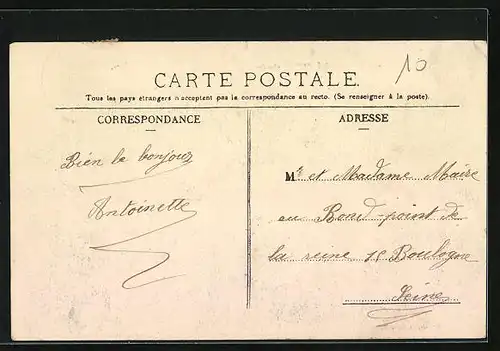 10
CARTE POSTALE.
Tous les pays étrangers n'acceptent pas la correspondance au recto. (Se renseigner à la poste).
CORRESPONDANCE
ADRESSE
Bien le bonjour
Antoinette
Mr et Madame Maire
au Rond-point de
la reine Boulogne
Seine